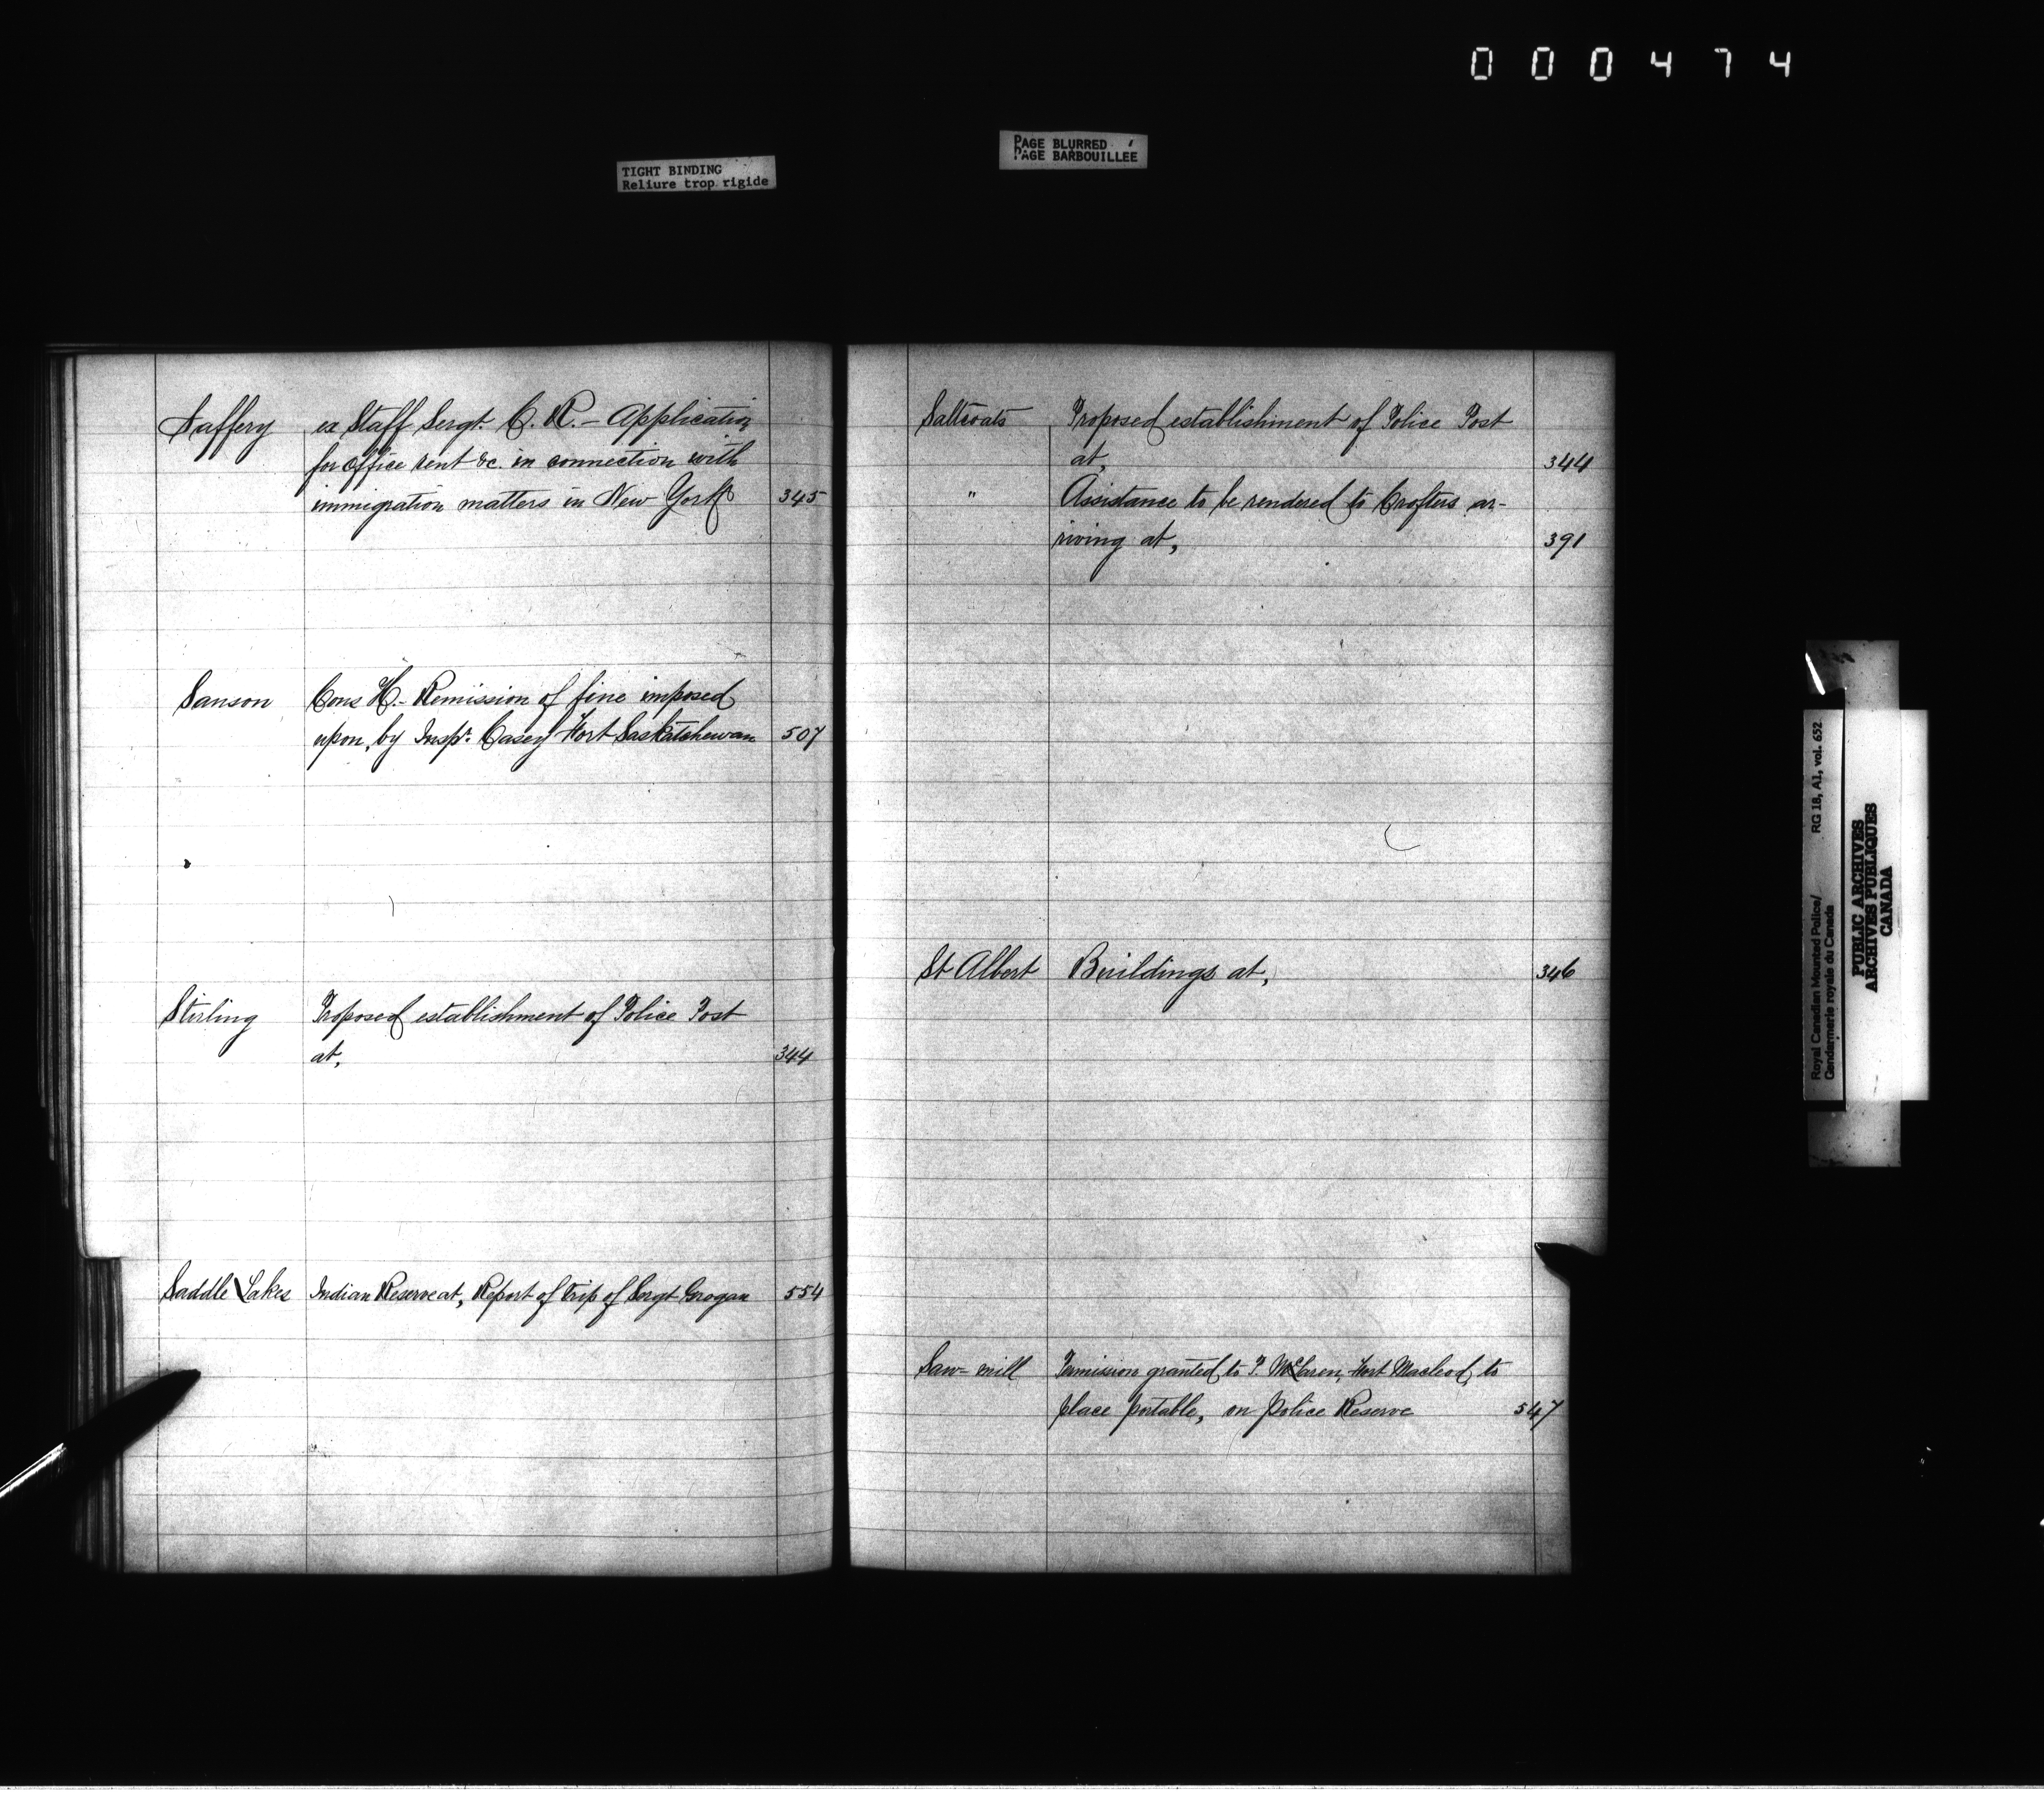 000474
TIGHT BINDING
Reliure trop rigide
PAGE BLURRED
PAGE BARBOUILLÉE
Saffery ex Staff Sergt. C. R. - Application
for office rent &c. in connection with
immigration matters in New York 345
Sanson Cons H. - Remission of fine imposed
upon, by Inspr. Casey Fort Saskatchewan 507
Stirling Proposed establishment of Police Post
at, 344
Saddle Lakes Indian Reserve at, Report of trip of Sergt Grogan 554
Saltcoats Proposed establishment of Police Post
at, 344
" Assistance to be rendered to Crofters ar-
riving at, 391
St Albert Buildings at, 346
Saw-mill Permission granted to P. McLaren, Fort Macleod, to
place portable, on Police Reserve 547
Royal Canadian Mounted Police/ RG 18, A1, vol. 652
Gendarmerie royale du Canada
PUBLIC ARCHIVES
ARCHIVES PUBLIQUES
CANADA